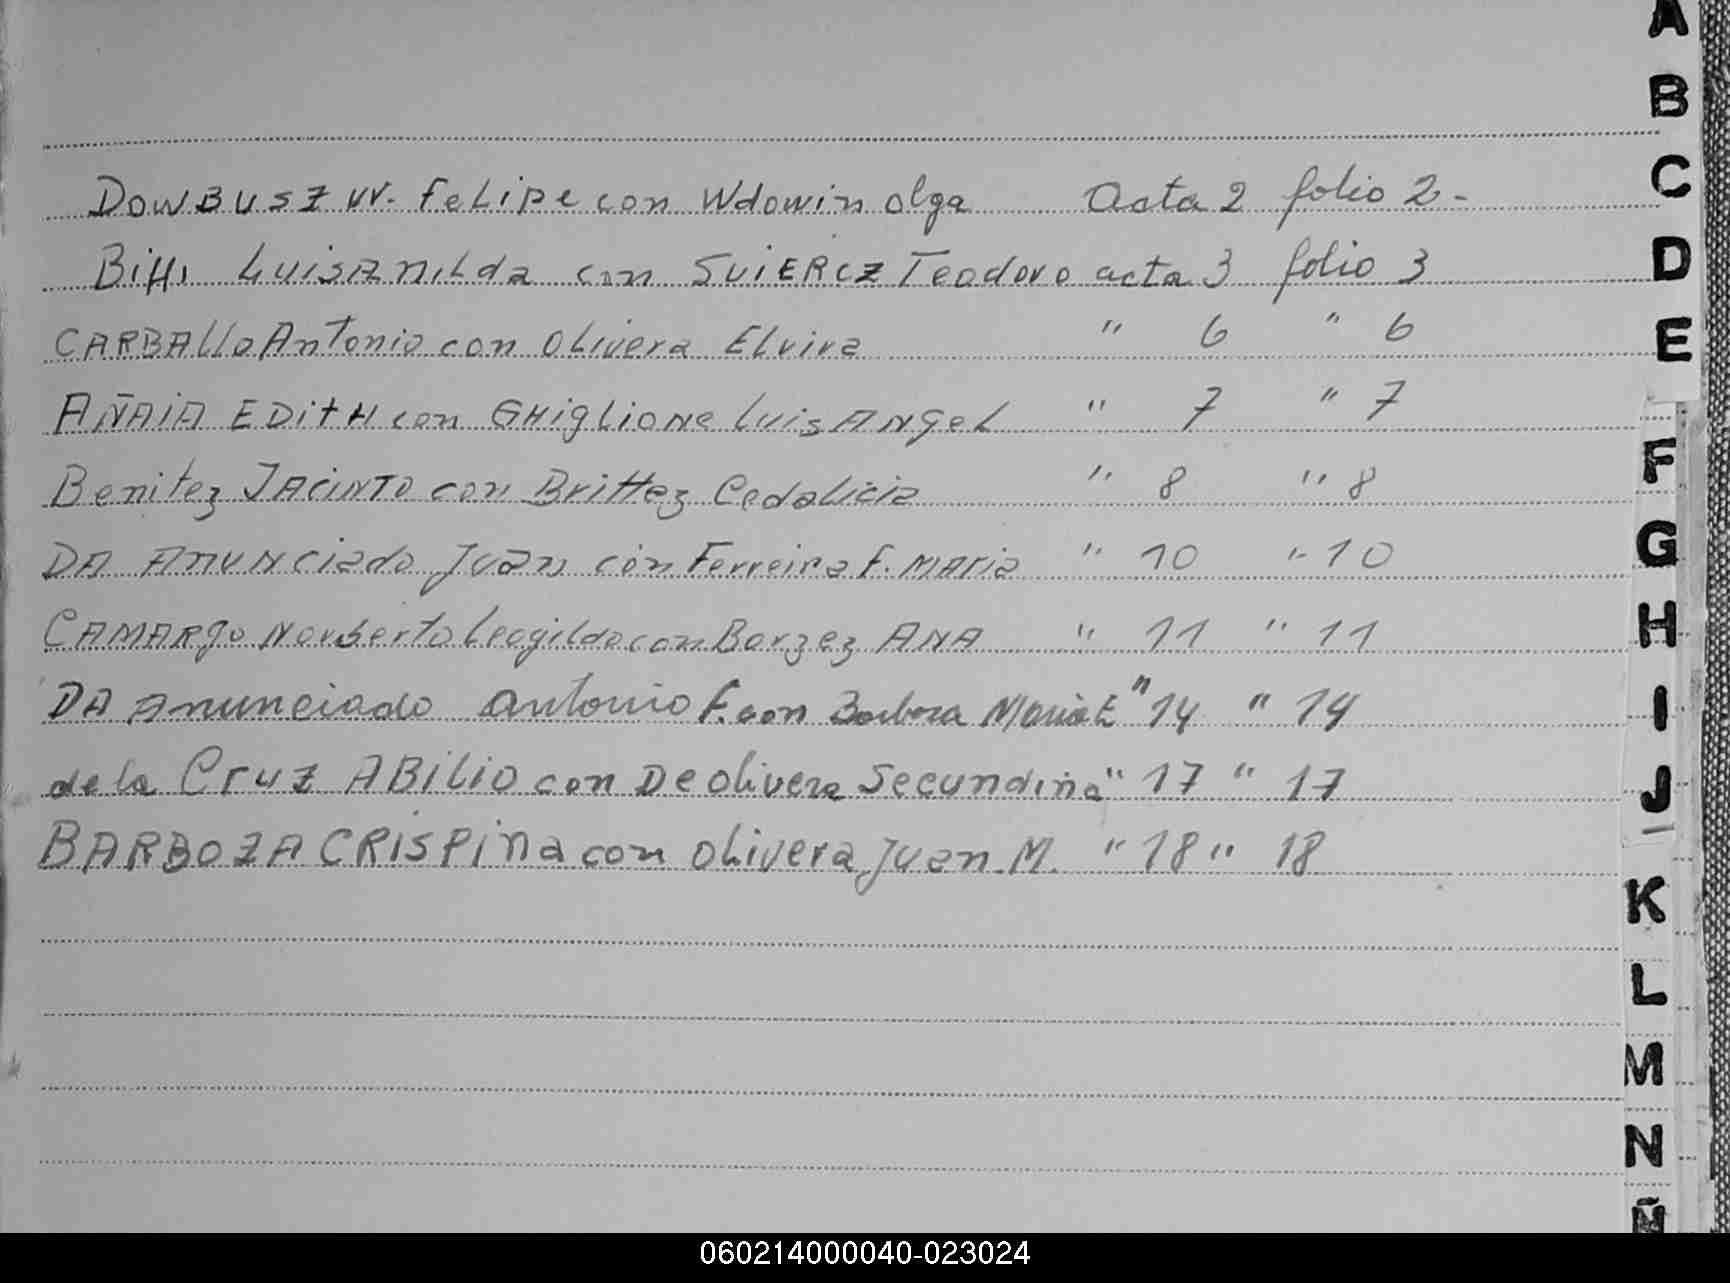 DowBUSZ W. FeLipe con Wdowin olga Acta 2 folio 2-
LuisaniLda con SViERCZ Teodoro acta 3 folio 3
CARBAllo Antonio con Olivera Elvira " 6 " 6
AÑAIA EDitH con GHiglione Luis ANgeL " 7 " 7
Benitez JACiNTO con Brittez Cedalicia " 8 " 8
DA Anunciado Juan con Ferreira F. MARia " 10 " 10
CAMARgo Norberto Leogildo con Borzez ANA " 11 " 11
DA Anunciado Antonio F. con Barboza Maria E " 14 " 14
de la Cruz ABiLio con De olivera Secundina " 17 " 17
BARBOZA CRisPina con oLivera Juan M. " 18 " 18
A
B
C
D
E
F
G
H
I
J
K
L
M
N
Ñ
060214000040-023024